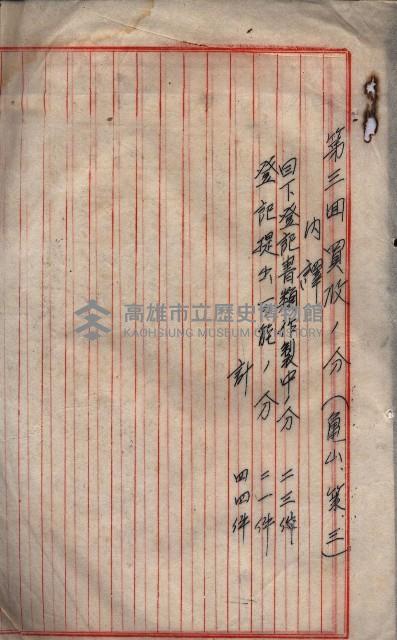 第三回買收ノ分(亀山、第三)
内譯
目下登記書類作製中ノ分 二三件
登記提出可能ノ分 二一件
計 四四件
高雄市立歷史博物館
KAOHSIUNG MUSEUM OF HISTORY